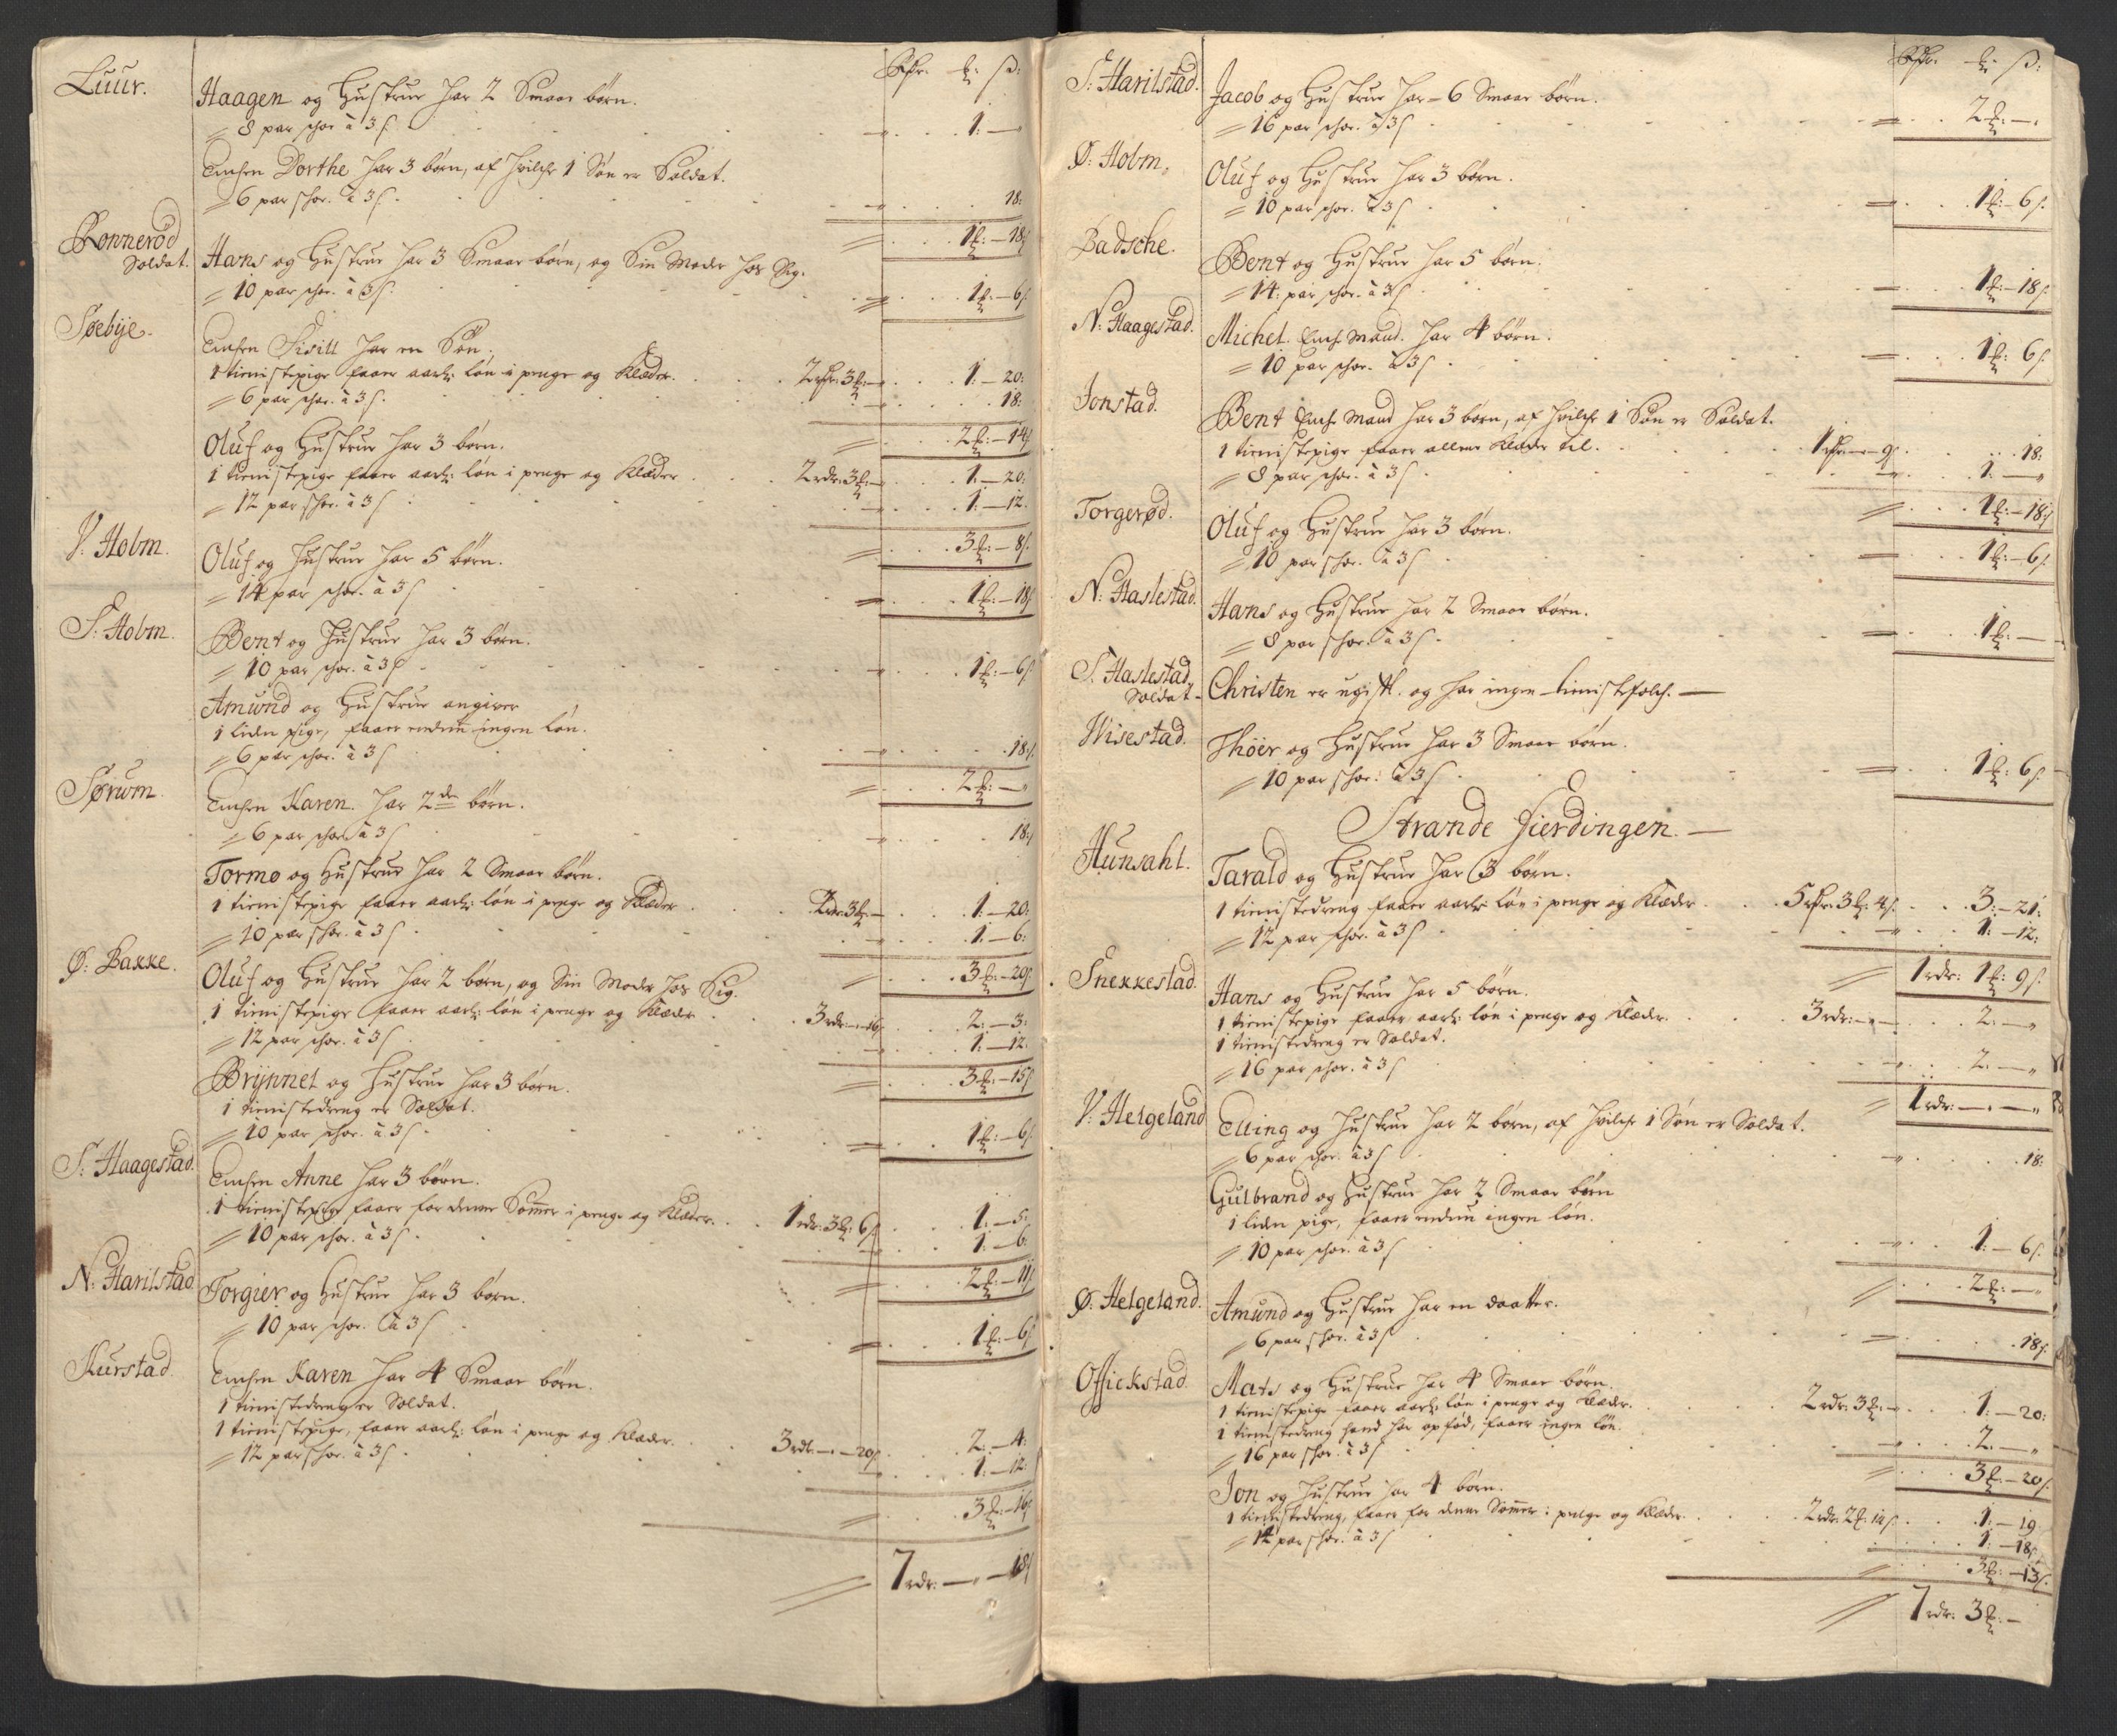 Rdr. ℔: ß:
Luur.
Haagen og Hustrue har 2 Smaae börn.
8 par schoe à 3ß. 1: —
Enchen Dorthe har 3 börn, af hvilche 1 Sön er Soldat.
6 par schoe. à 3ß. 18:
1℔: — 18ß
Ronnerød
Soldat.
Hans og Hustrue har 3 Smaae börn, og Sin Moder hos Sig.
10 par schoe. à 3ß. 1℔: — 6ß
Søebÿe.
Enchen Sisill har en Sön.
1 tienistepige faaer aarl: lön i penge og Klæder. 2rdr: 3℔: — 1: — 20:
6 par schoe. à 3ß. 18:
2℔: — 14ß
Oluf og Hustrue har 3 börn.
1 tienistepige faaer aarl: lön i penge og Klæder 2rdr: 3℔: — 1: — 20:
12 par schoe. à 3ß 1: — 12.
3℔: — 8ß.
V. Holm.
Oluf og Hustrue har 5 börn.
14 par schoe. à 3ß 1℔: — 18ß
S: Holm.
Bent og Hustrue har 3 börn.
10 par schoe. à 3ß 1℔: — 6ß
Amund og Hustrue angiver
1 liden pige, faaer endnu ingen lön.
6 par schoe. à 3ß 18ß.
2℔: —
Sørum.
Enchen Karen. har 2de börn.
6 par schoe à 3ß 18ß
Tormo og Hustrue har 2 Smaae börn.
1 tienistepige faaer aarl: lön i penge og Klæder 2rdr: 3℔: — 1: — 20:
10 par schoe. à 3ß 1: — 6:
3℔: — 20ß
Ø: Bakke.
Oluf og Hustrue har 2 börn, og Sin Moder hos Sig.
1 tienistepige faaer aarl: lön i penge og Klæder 3rdr: — 16. 2: — 3:
12 par schoe. à 3ß 1: — 12.
3℔: — 15ß
Brÿnnel og Hustrue har 3 börn.
1 tienistedreng er Soldat.
10 par schoe. à 3ß. 1℔: — 6ß
S: Haagestad.
Enchen Anne har 3 börn.
1 tienistepige faaer for denne Sommer i penge og Klæder. 1rdr: 3℔: 6ß 1: — 5:
10 par schoe. à 3ß. 1: — 6:
2℔: — 11ß
N: Harilstad
Torgier og Hustrue har 3 börn.
10 par schoe. à 3ß 1℔: — 6ß
Hurstad.
Enchen Karen har 4 Smaae börn.
1 tienistedreng er Soldat.
1 tienistepige, faaer aarl: lön i penge og Klæder. 3rdr: — 20ß. 2: — 4:
12 par schoe. à 3ß. 1: — 12:
3℔: — 16ß
7rdr: — 18ß
Rdr. ℔: ß:
S: Harilstad.
Jacob og Hustrue har 6 Smaae börn.
16 par schoe. à 3ß 2℔: —
Ø: Holm.
Oluf og Hustrue har 3 börn.
10 par schoe. à 3ß 1℔: — 6ß.
Badsche.
Bent og Hustrue har 5 börn.
14: par schoe. à 3ß 1℔: — 18ß.
N: Haagestad.
Michel. Ench Mand. har 4 börn.
10 par schoe. à 3ß 1℔: 6ß
Jonstad.
Bent Ench Mand har 3 börn, af hvilche 1 Sön er Soldat.
1 tienistepige faaer allene Klæder til. 1rdr: — 9ß 18:
8 par schoe. à 3ß. 1: —
1℔: — 18ß
Torgerød.
Oluf og Hustrue har 3 börn.
10 par schoe. à 3ß 1℔: — 6ß.
N: Haslestad.
Hans og Hustrue har 2 Smaae börn.
8 par schoe. à 3ß. 1℔: —
S. Haslestad
Soldat
Christen er ugift. og har ingen tienistefolch. —
Wisestad.
Thöer og Hustrue har 3 Smaae börn.
10 par schoe: à 3ß. 1℔: 6ß
Strande Fierdingen. —
Hunsahl.
Tarald og Hustrue har 3 börn.
1 tienistedreng faaer aarl: lön i penge og Klæder 5rdr: 3℔: 4ß. 3: — 21:
12 par schoe. à 3ß 1: — 12:
1rdr: 1℔: 9ß.
Snekkestad.
Hans og Hustrue har 5 börn.
1 tienistepige faaer aarl: lön i penge og Klæder. 3rdr: — 2: —
1 tienistedreng er Soldat.
16 par schoe. à 3ß 2: —
1rdr: — —
V: Helgeland
Elling og Hustrue har 2 börn, af hvilche 1 Sön er Soldat.
6 par schoe. à 3ß 18:
Gulbrand og Hustrue har 2 Smaae börn
1 liden pige, faaer endnu ingen lön.
10 par schoe. à 3ß 1: — 6ß.
2℔: —
Ø: Helgeland.
Amund og Hustrue har en daatter.
6 par schoe. à 3ß 18ß.
Offickstad.
Mats og Hustrue har 4 Smaae börn.
1 tienistepige faaer aarl: lön i penge og Klæder. 2rdr: 3℔: — 1: — 20:
1 tienistedreng hand har opfød, faaer ingen lön.
16 par schoe. à 3ß 2: —
3℔: — 20ß.
Jon og Hustrue har 4 börn.
1 tienistedreng, faaer for denne Sommer i penge og Klæder 2rdr: 2℔: 14ß. 1: — 19
14 par schoe. à 3ß 1: — 18ß.
3℔: — 13ß.
7rdr: 3℔: —